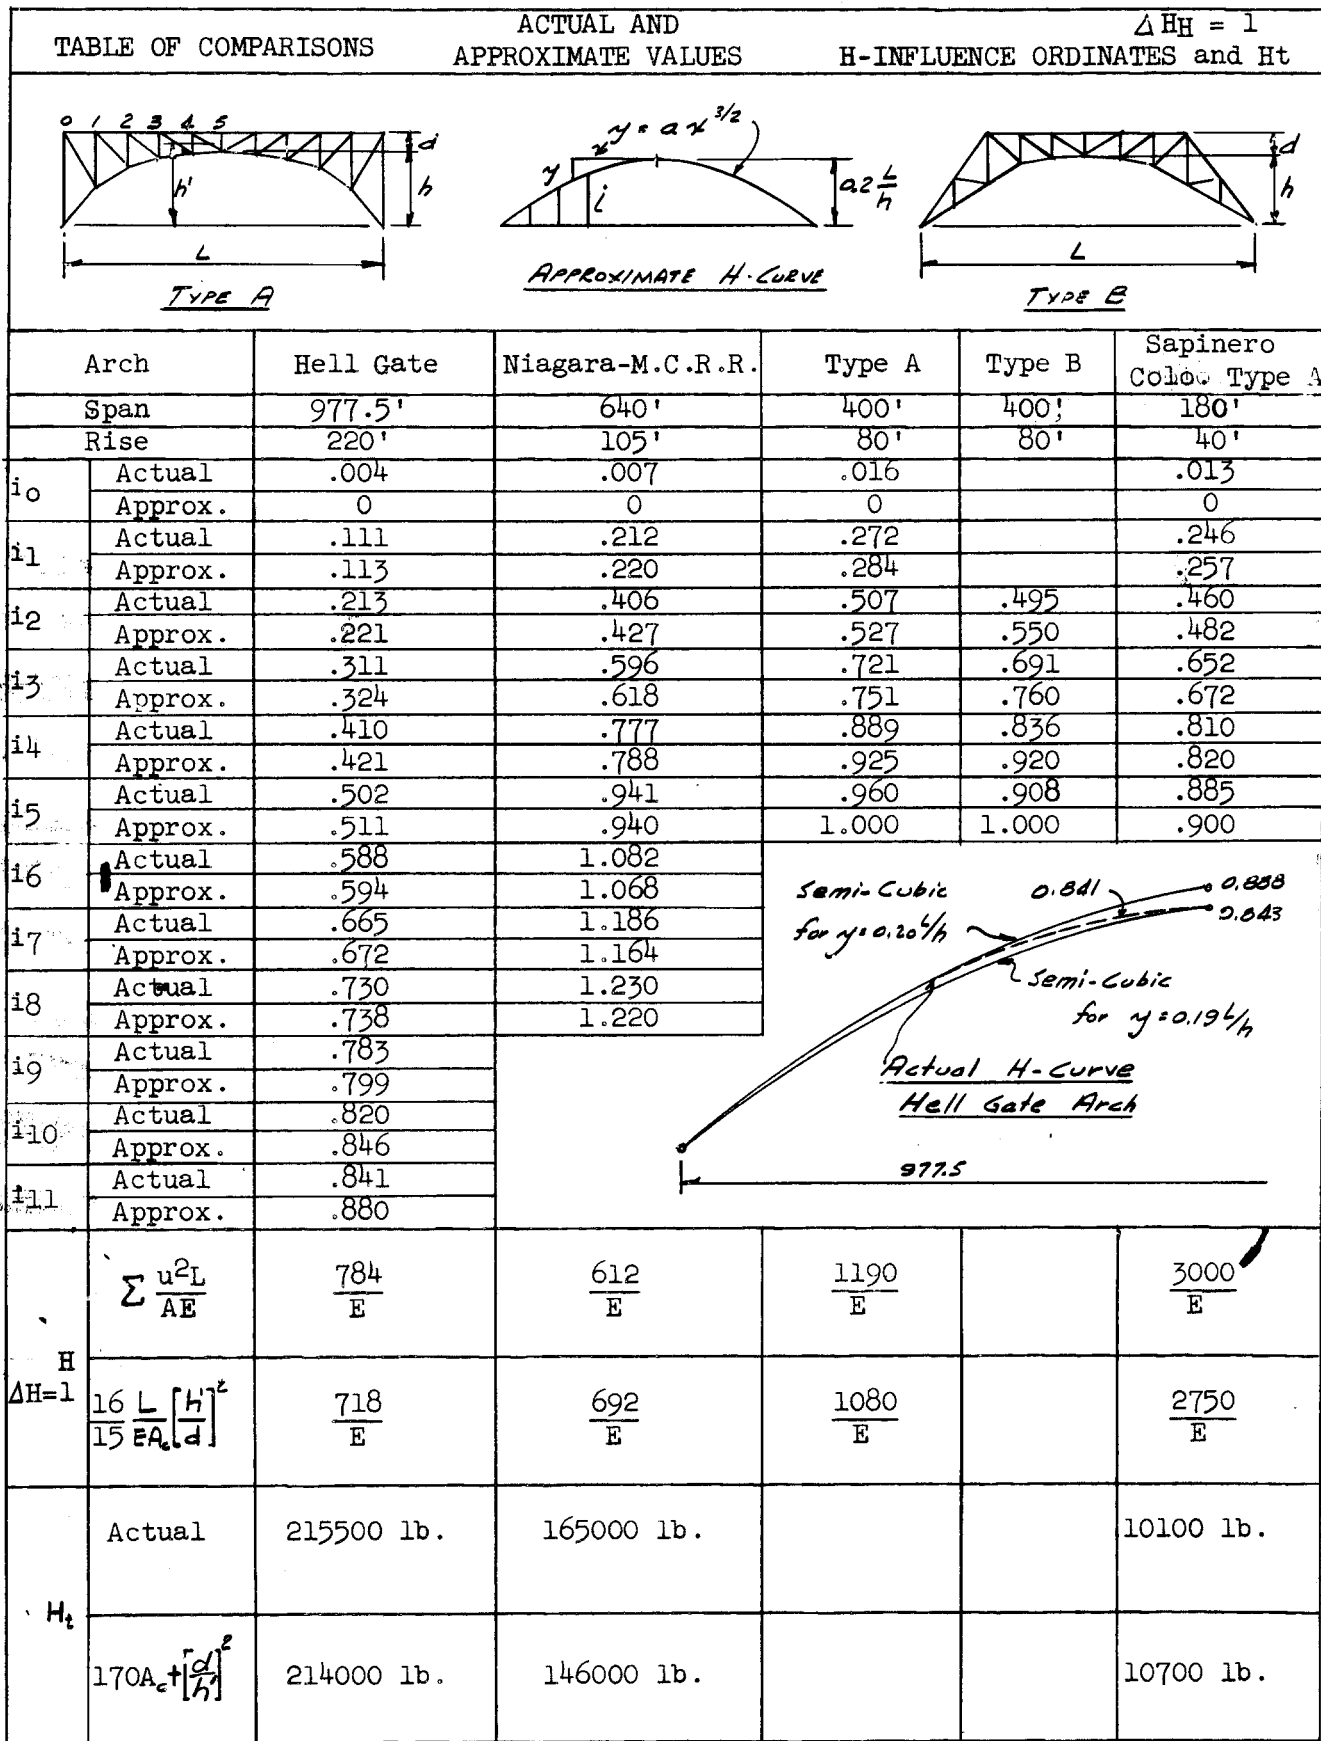 TABLE OF COMPARISONS
ACTUAL AND
APPROXIMATE VALUES
ΔHH = 1
H-INFLUENCE ORDINATES and Ht
0 1 2 3 4 5
d
h'
h
L
TYPE A
y = a x^3/2
x
y
i
0.2 L/h
APPROXIMATE H-CURVE
d
h
L
TYPE B
Arch Hell Gate Niagara-M.C.R.R. Type A Type B Sapinero Colo. Type A
Span 977.5' 640' 400' 400' 180'
Rise 220' 105' 80' 80' 40'
i0 Actual .004 .007 .016 .013
Approx. 0 0 0 0
i1 Actual .111 .212 .272 .246
Approx. .113 .220 .284 .257
i2 Actual .213 .406 .507 .495 .460
Approx. .221 .427 .527 .550 .482
i3 Actual .311 .596 .721 .691 .652
Approx. .324 .618 .751 .760 .672
i4 Actual .410 .777 .889 .836 .810
Approx. .421 .788 .925 .920 .820
i5 Actual .502 .941 .960 .908 .885
Approx. .511 .940 1.000 1.000 .900
i6 Actual .588 1.082
Approx. .594 1.068
i7 Actual .665 1.186
Approx. .672 1.164
i8 Actual .730 1.230
Approx. .738 1.220
i9 Actual .783
Approx. .799
i10 Actual .820
Approx. .846
i11 Actual .841
Approx. .880
Semi-Cubic
for y=0.20 L/h
0.841
0.888
0.843
Semi-Cubic
for y=0.19 L/h
Actual H-Curve
Hell Gate Arch
977.5
H
ΔH=1
Σ u²L/AE 784/E 612/E 1190/E 3000/E
16/15 L/EAc [h'/d]² 718/E 692/E 1080/E 2750/E
Ht
Actual 215500 lb. 165000 lb. 10100 lb.
170Ac+[d/h']² 214000 lb. 146000 lb. 10700 lb.